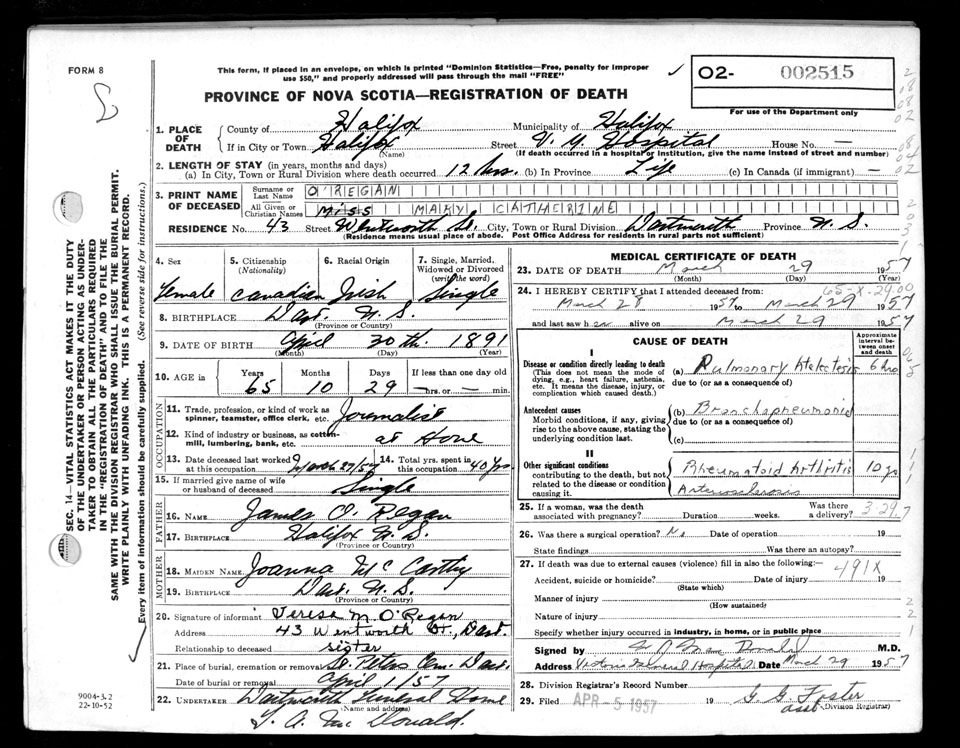 FORM 8
This form, if placed in an envelope, on which is printed "Dominion Statistics—Free, penalty for improper
use $50," and properly addressed will pass through the mail "FREE"
PROVINCE OF NOVA SCOTIA—REGISTRATION OF DEATH
O2- 002515
For use of the Department only
SEC. 14—VITAL STATISTICS ACT MAKES IT THE DUTY
OF THE UNDERTAKER OR PERSON ACTING AS UNDER-
TAKER TO OBTAIN ALL THE PARTICULARS REQUIRED
IN THE "REGISTRATION OF DEATH" AND TO FILE THE
SAME WITH THE DIVISION REGISTRAR WHO SHALL ISSUE THE BURIAL PERMIT.
WRITE PLAINLY WITH UNFADING INK. THIS IS A PERMANENT RECORD.
Every item of information should be carefully supplied. (See reverse side for instructions.)
1. PLACE OF DEATH
County of Halifax Municipality of Halifax
If in City or Town Halifax (Name) Street V. G. Hospital House No. —
(If death occurred in a hospital or institution, give the name instead of street and number)
2. LENGTH OF STAY (in years, months and days)
(a) In City, Town or Rural Division where death occurred 12 hrs. (b) In Province Life (c) In Canada (if immigrant) —
3. PRINT NAME OF DECEASED
Surname or Last Name O'REGAN
All Given or Christian Names MISS MARY CATHERINE
RESIDENCE No. 43 Street Wentworth St. City, Town or Rural Division Dartmouth Province N. S.
(Residence means usual place of abode. Post Office Address for residents in rural parts not sufficient)
4. Sex female
5. Citizenship (Nationality) Canadian
6. Racial Origin Irish
7. Single, Married, Widowed or Divorced (write the word) Single
8. BIRTHPLACE Dart. N. S.
(Province or Country)
9. DATE OF BIRTH April 30th. 1891
(Month) (Day) (Year)
10. AGE in Years 65 Months 10 Days 29 If less than one day old — hrs. or — min.
OCCUPATION
11. Trade, profession, or kind of work as spinner, teamster, office clerk, etc. Journalist
12. Kind of industry or business, as cotton-mill, lumbering, bank, etc. at Home
13. Date deceased last worked at this occupation March 27/57
14. Total yrs. spent in this occupation 40 yrs
15. If married give name of wife or husband of deceased Single
FATHER
16. NAME James O. Regan
17. BIRTHPLACE Halifax N. S.
(Province or Country)
MOTHER
18. MAIDEN NAME Joanna McCarthy
19. BIRTHPLACE Dart. N. S.
(Province or Country)
20. Signature of informant Teresa M. O'Regan
Address 43 Wentworth St., Dart.
Relationship to deceased sister
21. Place of burial, cremation or removal St. Peters Cem. Dart.
Date of burial or removal April 1/57
22. UNDERTAKER Dartmouth Funeral Home
(Name and address)
MEDICAL CERTIFICATE OF DEATH
23. DATE OF DEATH March 29 1957
(Month) (Day) (Year)
24. I HEREBY CERTIFY that I attended deceased from:
March 28 1957 to March 29 1957
and last saw her alive on March 29 1957
CAUSE OF DEATH
Approximate interval between onset and death
I
Disease or condition directly leading to death
(This does not mean the mode of dying, e.g., heart failure, asthenia, etc. It means the disease, injury, or complication which caused death.)
(a) Pulmonary Atelectesis 6 hrs
due to (or as a consequence of)
Antecedent causes
Morbid conditions, if any, giving rise to the above cause, stating the underlying condition last.
(b) Bronchopneumonia
due to (or as a consequence of)
(c)
II
Other significant conditions
contributing to the death, but not related to the disease or condition causing it.
Rheumatoid Arthritis 10 yrs
Arteriosclerosis
25. If a woman, was the death associated with pregnancy? Duration weeks. Was there a delivery? 3-29.7
26. Was there a surgical operation? No Date of operation 19
State findings Was there an autopsy?
27. If death was due to external causes (violence) fill in also the following: 491X
Accident, suicide or homicide? Date of injury 19
(State which)
Manner of injury
(How sustained)
Nature of injury
Specify whether injury occurred in industry, in home, or in public place
Signed by M.D.
Address Victoria General Hospital Date March 29 1957
28. Division Registrar's Record Number
29. Filed APR -5 1957 19 G. G. Foster
asst Division Registrar)
9004-3.2
22-10-52